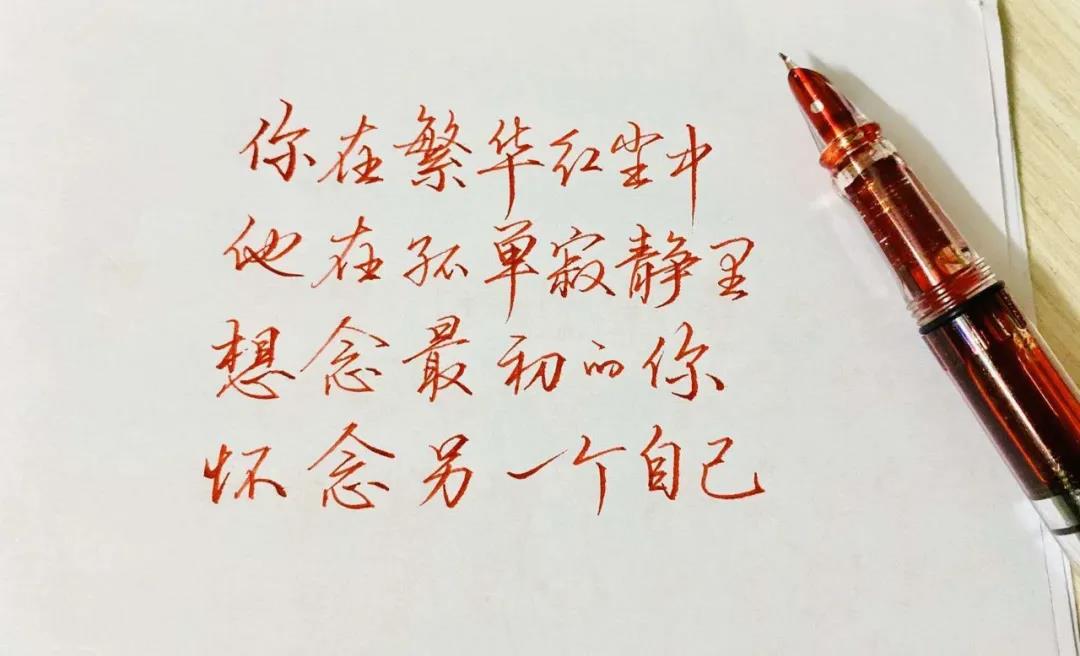 你在繁华红尘中
他在孤单寂静里
想念最初的你
怀念另一个自己